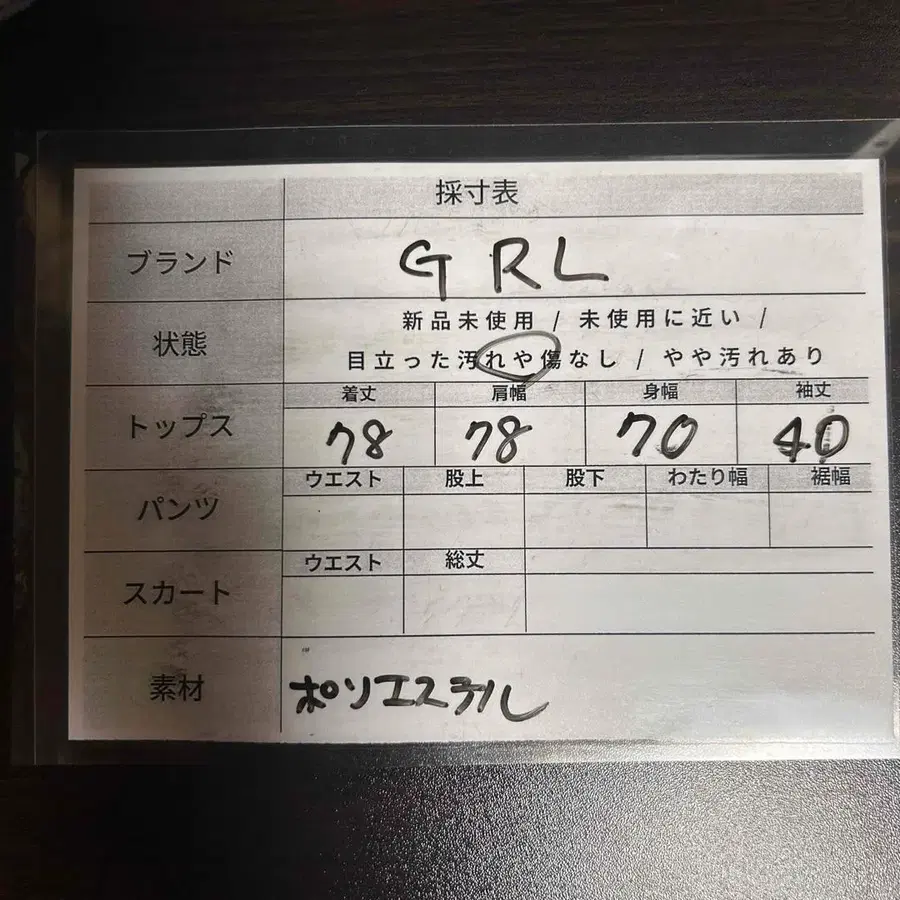 採寸表
ブランド GRL
状態 新品未使用 / 未使用に近い /
目立った汚れや傷なし / やや汚れあり
着丈 肩幅 身幅 袖丈
トップス 78 78 70 40
ウエスト 股上 股下 わたり幅 裾幅
パンツ
ウエスト 総丈
スカート
素材 ポリエステル